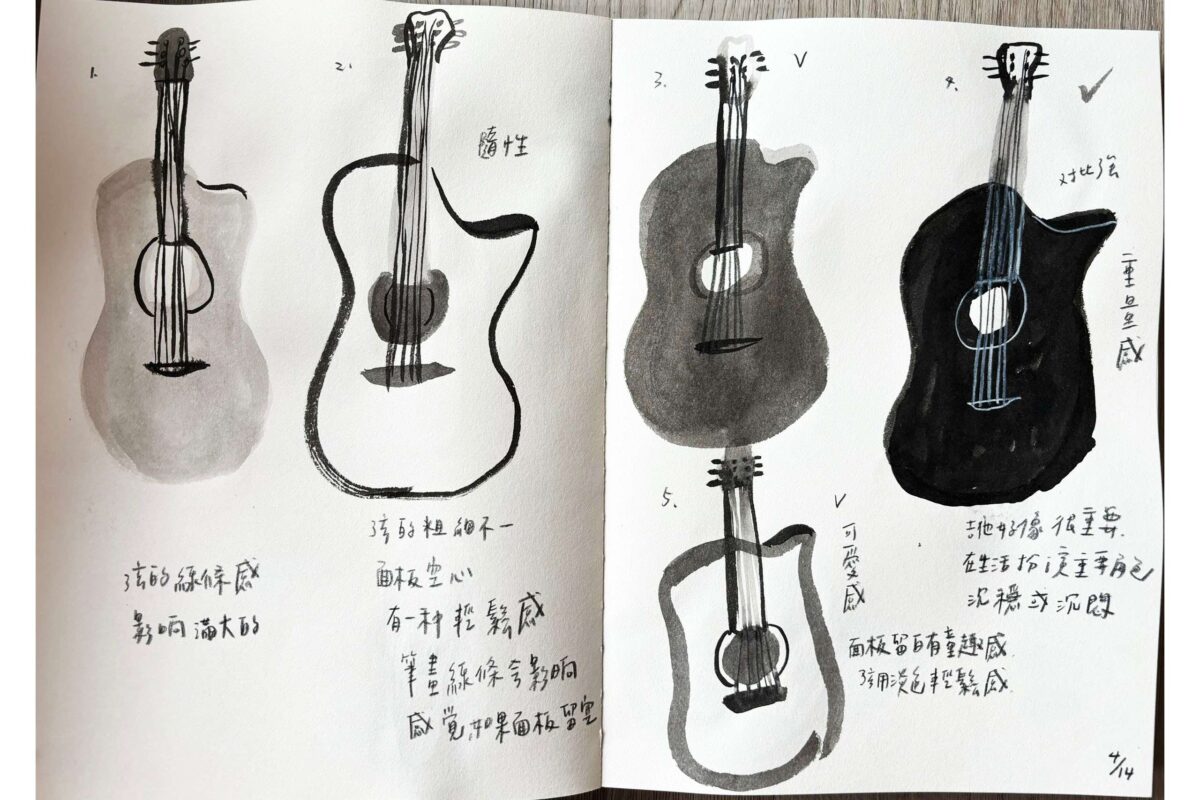 1.
弦的線條感
影响滿大的
2.
隨性
弦的粗細不一
面板空心
有一种輕鬆感
筆畫線條会影响
感覚如果面板留空
3.
4.
对比強
重量感
吉他好像很重要
在生活扮演重要角色
沉穩或沉悶
5.
可愛感
面板留白有童趣感.
弦用淡色輕鬆感.
4/14